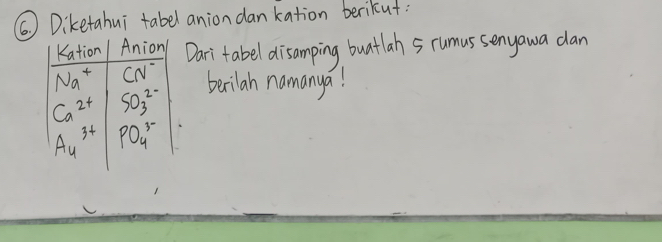 6. Diketahui tabel anion dan kation berikut:
Kation | Anion
Na⁺ | CN⁻
Ca²⁺ | SO₃²⁻
Au³⁺ | PO₄³⁻
Dari tabel disamping buatlah 5 rumus senyawa dan
berilah namanya!